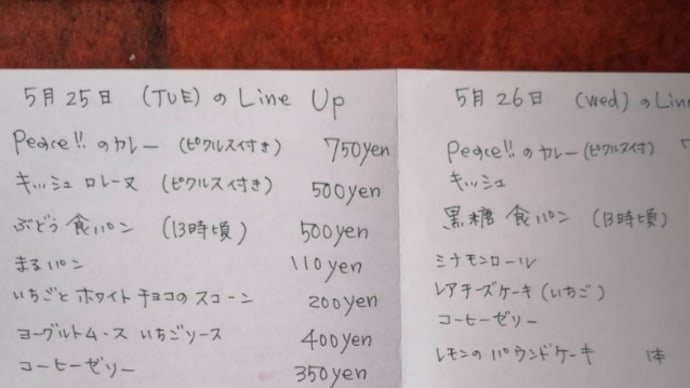 5月25日 (TUE)のLine Up
Peace!!のカレー (ピクルス付き) 750yen
キッシュ ロレーヌ (ピクルス付き) 500yen
ぶどう食パン (13時頃) 500yen
まるパン 110yen
いちごとホワイトチョコのスコーン 200yen
ヨーグルトムース いちごソース 400yen
コーヒーゼリー 350yen
5月26日 (Wed)のLin
Peace!!のカレー(ピクルス付) 7
キッシュ
黒糖食パン (13時頃)
シナモンロール
レアチーズケーキ(いちご)
コーヒーゼリー
レモンのパウンドケーキ 1本